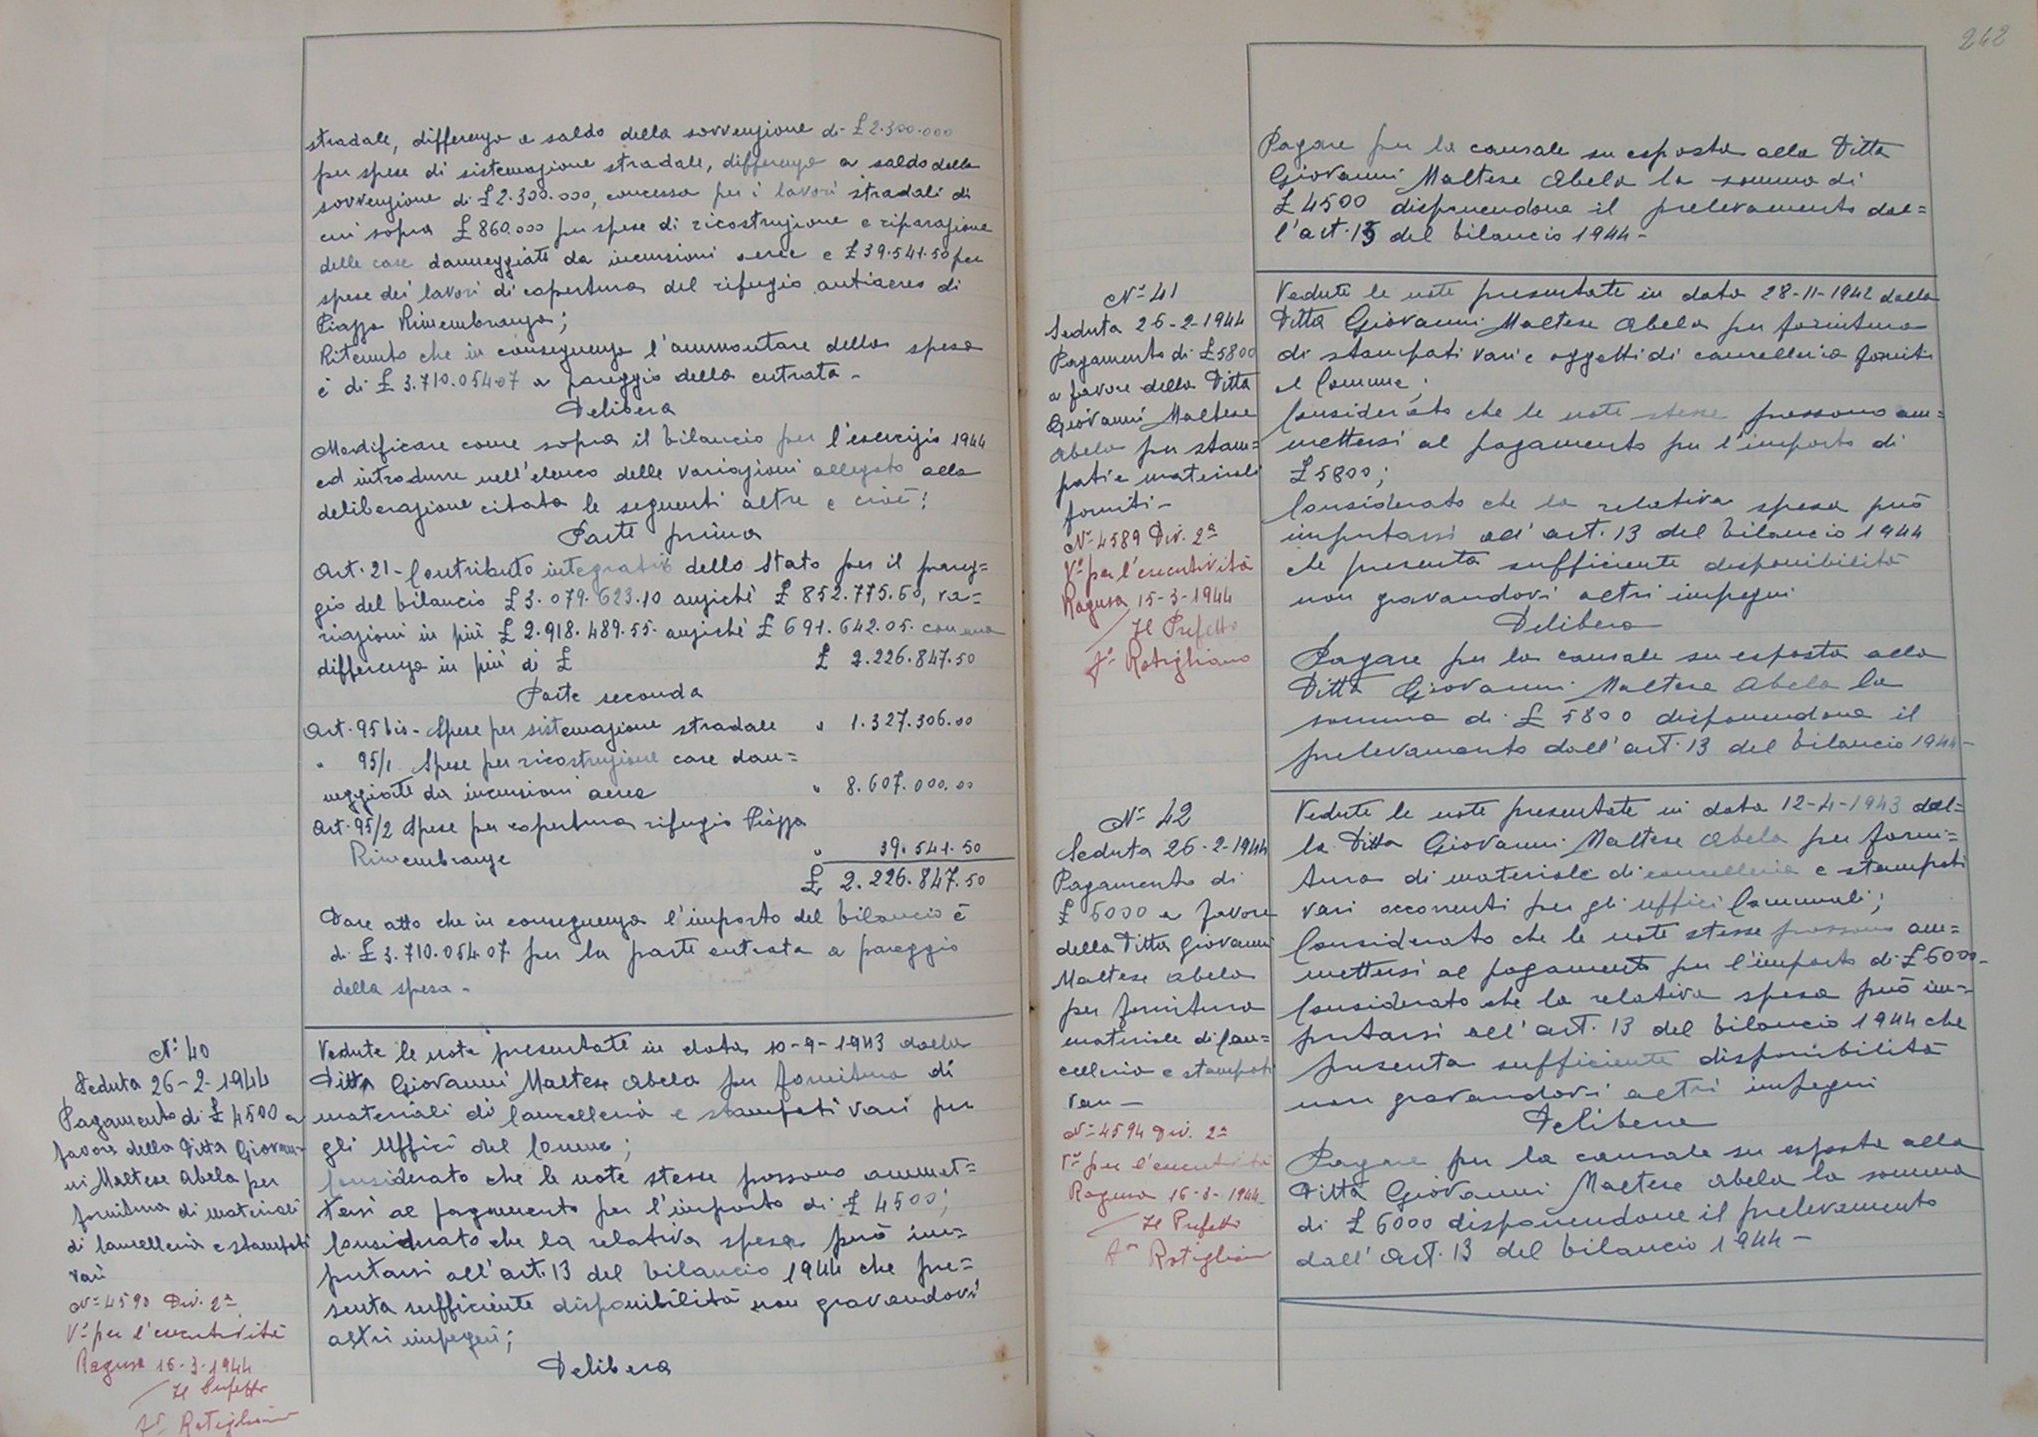 stradale, differenza a saldo della sovvenzione di £ 2.300.000
per spese di sistemazione stradale, differenza a saldo della
sovvenzione di £ 2.300.000, concessa per i lavori stradali di
cui sopra £ 860.000 per spese di ricostruzione e riparazione
delle case danneggiate da incursioni aeree e £ 39.541.50 per
spese dei lavori di copertura del rifugio antiaereo di
Piazza Rimembranza;
Ritenuto che in conseguenza l'ammontare della spesa
è di £ 3.710.054.07 a pareggio della entrata -
Delibera
Modificare come sopra il bilancio per l'esercizio 1944
ed introdurre nell'elenco delle variazioni allegato alla
deliberazione citata le seguenti altre e cioè:
Parte prima
Art. 21 - Contributo integrativo dello Stato per il pareg=
gio del bilancio £ 3.079.623.10 anziché £ 852.775.60, va=
riazioni in più £ 2.918.489.55 anziché £ 691.642.05 con una
differenza in più di £ £ 2.226.847.50
Parte seconda
Art. 95 bis - Spese per sistemazione stradale " 1.327.306.00
" 95/1 Spese per ricostruzione case dan=
neggiate da incursioni aeree " 8.607.000.00
Art. 95/2 Spese per copertura rifugio Piazza
Rimembranze " 39.541.50
£ 2.226.847.50
Dare atto che in conseguenza l'importo del bilancio è
di £ 3.710.054.07 per la parte entrata a pareggio
della spesa -
N° 40
Seduta 26-2-1944
Pagamento di £ 4500 a
favore della Ditta Giovan-
ni Maltese Abela per
fornitura di materiali
di cancelleria e stampati
vari
N° 4590 Div. 2ª
V° per l'esecutività
Ragusa 16-3-1944
Il Prefetto
Fº Rotigliano
Vedute le note presentate in data 10-9-1943 dalla
Ditta Giovanni Maltese Abela per fornitura di
materiali di cancelleria e stampati vari per
gli Uffici del Comune;
Considerato che le note stesse possono ammet=
tersi al pagamento per l'importo di £ 4500;
Considerato che la relativa spesa può im=
putarsi all'art. 13 del bilancio 1944 che pre=
senta sufficiente disponibilità non gravandovi
altri impegni;
Delibera
242
Pagare per la causale su esposta alla Ditta
Giovanni Maltese Abela la somma di
£ 4500 disponendone il prelevamento dal=
l'art. 13 del bilancio 1944 -
N° 41
Seduta 26-2-1944
Pagamento di £ 5800
a favore della Ditta
Giovanni Maltese
Abela per stam=
pati e materiali
forniti -
N° 4589 Div. 2ª
V° per l'esecutività
Ragusa 15-3-1944
Il Prefetto
Fº Rotigliano
Vedute le note presentate in data 28-11-1942 dalla
Ditta Giovanni Maltese Abela per fornitura
di stampati vari e oggetti di cancelleria forniti
al Comune;
Considerato che le note stesse possono am=
mettersi al pagamento per l'importo di
£ 5800;
Considerato che la relativa spesa può
imputarsi all'art. 13 del bilancio 1944
che presenta sufficiente disponibilità
non gravandovi altri impegni
Delibera
Pagare per la causale su esposta alla
Ditta Giovanni Maltese Abela la
somma di £ 5800 disponendone il
prelevamento dall'art. 13 del bilancio 1944 -
N° 42
Seduta 26-2-1944
Pagamento di
£ 6000 a favore
della Ditta Giovanni
Maltese Abela
per fornitura
materiale di can=
celleria e stampati
vari -
N° 4594 Div. 2ª
V° per l'esecutività
Ragusa 16-3-1944
Il Prefetto
Fº Rotigliano
Vedute le note presentate in data 12-4-1943 dal=
la Ditta Giovanni Maltese Abela per forni=
tura di materiale di cancelleria e stampati
vari occorrenti per gli uffici Comunali;
Considerato che le note stesse possono am=
mettersi al pagamento per l'importo di £ 6000 -
Considerato che la relativa spesa può im=
putarsi all'art. 13 del bilancio 1944 che
presenta sufficiente disponibilità
non gravandovi altri impegni
Delibera
Pagare per la causale su esposta alla
Ditta Giovanni Maltese Abela la somma
di £ 6000 disponendone il prelevamento
dall'art. 13 del bilancio 1944 -